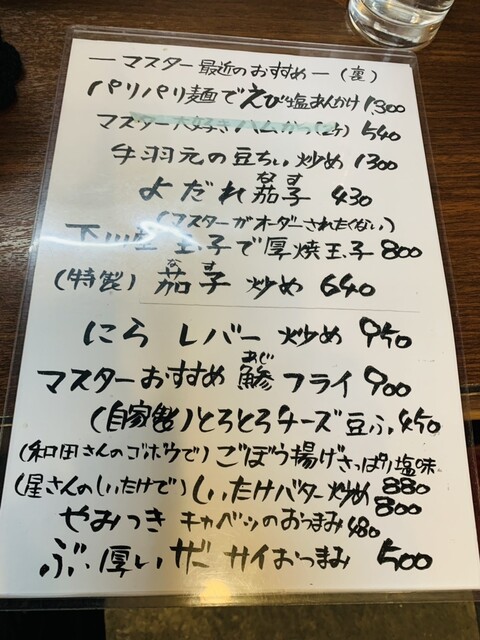 ーマスター最近のおすすめー(裏)
パリパリ麺でえび塩あんかけ 1,300
マスター大好きハムかつ(2ケ) 540
牛羽元の豆ちぃ炒め 1300
よだれ茄子 なす 430
(マスターがオーダーされたくない)
下川産 玉子で厚焼玉子 800
(特製) 茄子 なす 炒め 640
にら レバー 炒め 950
マスターおすすめ 鯵 あじ フライ 900
(自家製)とろとろチーズ豆ふ 450
(和田さんのゴボウで)ごぼう揚げさっぱり塩味 880
(屋さんのしいたけで)しいたけバター炒め 800
やみつき キャベツのおつまみ 480
ぶ厚いザーサイおつまみ 500